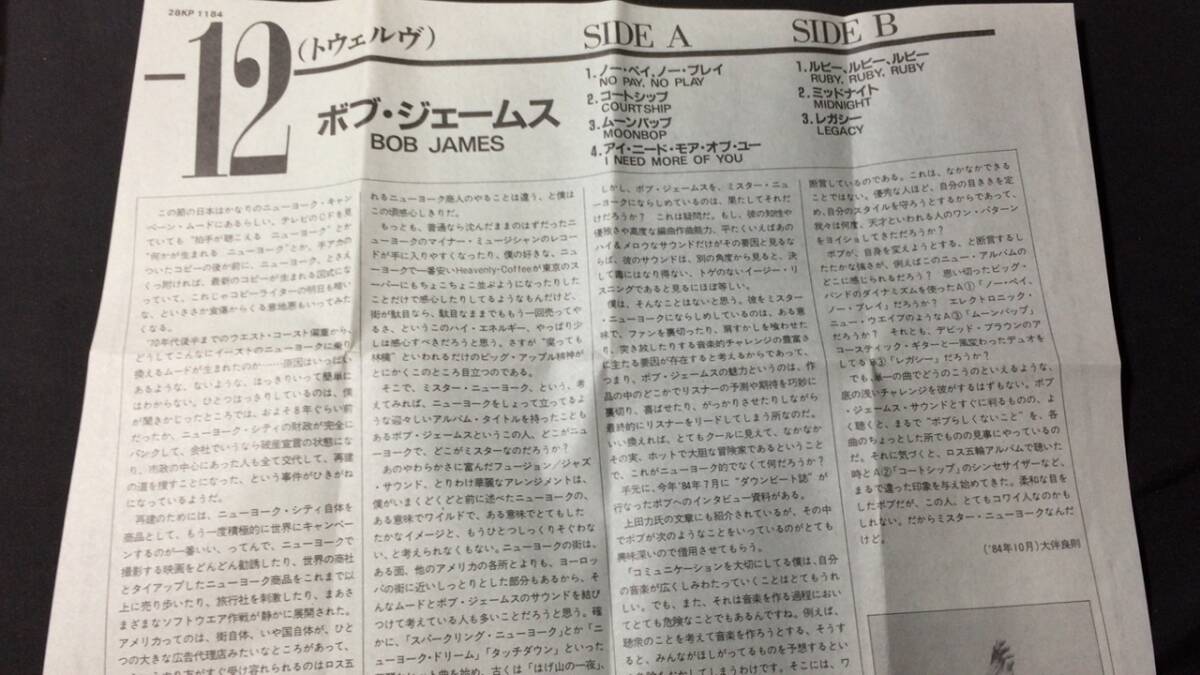 28KP 1184
12
(トウェルヴ)
ボブ・ジェームス
BOB JAMES
SIDE A
1.ノー・ペイ、ノー・プレイ
NO PAY, NO PLAY
2.コートシップ
COURTSHIP
3.ムーンバップ
MOONBOP
4.アイ・ニード・モア・オブ・ユー
I NEED MORE OF YOU
SIDE B
1.ルビー、ルビー、ルビー
RUBY, RUBY, RUBY
2.ミッドナイト
MIDNIGHT
3.レガシー
LEGACY
この節の日本はかなりのニューヨーク・キャン
ペーン・ムードにあるらしい。テレビのCFを見
ていても“拍手が聴こえる ニューヨーク”とか
“何かが生まれる ニューヨーク”とか、手アカの
ついたコピーの後か前に、ニューヨーク、とさえ
くっ附ければ、最新のコピーが生まれる図式にな
っていて、これじゃコピーライターの明日も暗い
な、といささか哀傷からくる意地悪もいってみた
くなる。
'70年代後半までのウエスト・コースト偏重から、
どうしてこんなにイーストのニューヨークに乗り
換えるムードが生まれたのか……原因はいっぱい
あるような、ないような、はっきりいって簡単に
はわからない。ひとつはっきりしているのは、僕
が聞きかじったところでは、およそ8年ぐらい前
だったか、ニューヨーク・シティの財政が完全に
パンクして、会社でいうなら破産宣言の状態にな
り、市政の中心にあった人も全て交代して、再建
の道を捜すことになった、という事件がひきがね
になっているようだ。
再建のためには、ニューヨーク・シティ自体を
商品として、もう一度積極的に世界にキャンペー
ンするのが一番いい、ってんで、ニューヨークで
撮影する映画をどんどん勧誘したり、世界の商社
とタイアップしたニューヨーク商品をこれまで以
上に売り歩いたり、旅行社を刺激したり、まあさ
まざまなソフトウエア作戦が静かに展開された。
アメリカってのは、街自体、いや国自体が、ひと
つの大きな広告代理店みたいなところがあって、
れるニューヨーク商人のやることは違う、と僕は
この頃感心しきりだ。
もっとも、普通なら沈んだままのはずだったニ
ューヨークのマイナー・ミュージシャンのレコー
ドが手に入りやすくなったり、僕の好きな、ニュ
ーヨークで一番安いHeavenly-Coffeeが東京のス
ーパーにもちょこちょこ並ぶようになったりした
ことだけで感心したりしてるようなもんだけど、
街が駄目なら、駄目なままでももう一回売ってや
るさ、というこのハイ・エネルギー、やっぱり少
しは感心すべきだろうと思う。さすが“腐っても
林檎”といわれるだけのビッグ・アップル精神が
とにかくこのところ目立つのである。
そこで、ミスター・ニューヨーク、という、考
えてみれば、ニューヨークをしょって立ってるよ
うな迎々しいアルバム・タイトルを持ったことも
あるボブ・ジェームスというこの人、どこがニュ
ーヨークで、どこがミスターなのだろうか?
あのやわらかさに富んだフュージョン/ジャズ
・サウンド、とりわけ華麗なアレンジメントは、
僕がいまくどくどと前に述べたニューヨークの、
ある意味でワイルドで、ある意味でとてもした
たかなイメージと、もうひとつしっくりそぐわな
い、と考えられなくもない。ニューヨークの街は、
ある面、他のアメリカの各所とよりも、ヨーロッ
パの街に近いしっとりとした部分もあるから、そ
んなムードとボブ・ジェームスのサウンドを結び
つけて考えている人も多いことだろうと思う。確
かに、「スパークリング・ニューヨーク」とか「ニ
ューヨーク・ドリーム」「タッチダウン」といった
しかし、ボブ・ジェームスを、ミスター・ニュ
ーヨークにならしめているのは、果たしてそれだ
けだろうか? これは疑問だ。もし、彼の知性や
優雅さや高度な編曲作曲能力、平たくいえばあの
ハイ&メロウなサウンドだけがその要因と見るな
らば、彼のサウンドは、別の角度から見ると、決
して毒にはなり得ない、トゲのないイージー・リ
スニングであると見るにほぼ等しい。
僕は、そんなことはないと思う。彼をミスター
・ニューヨークにならしめているのは、ある意
味で、ファンを裏切ったり、肩すかしを喰わせた
り、突き放したりする音楽的チャレンジの豊富さ
に主たる要因が存在すると考えるからであって、
つまり、ボブ・ジェームスの魅力というのは、作
品の中のどこかでリスナーの予測や期待を巧妙に
裏切り、喜ばせたり、がっかりさせたりしながら
最終的にリスナーをリードしてしまう所なのだ。
いい換えれば、とてもクールに見えて、なかなか
その実、ホットで大胆な冒険家であるということ
で、これがニューヨーク的でなくて何だろうか?
手元に、今年'84年7月に“ダウンビート誌”が
行なったボブへのインタビュー資料がある。
上田力氏の文章にも紹介されているが、その中
でボブが次のようなことをいっているのがとても
興味深いので借用させてもらう。
「コミュニケーションを大切にしてる僕は、自分
の音楽が広くしみわたっていくことはとてもうれ
しい。でも、また、それは音楽を作る過程におい
てとても危険なことでもあるんですね。例えば、
聴衆のことを考えて音楽を作ろうとする、そうす
ると、みんながほしがってるものを予想するとい
断言しているのである。これは、なかなかできる
ことではない。優秀な人ほど、自分の目ききを定
め、自分のスタイルを守ろうとするからであって、
我々は何度、天才といわれる人のワン・パターン
をヨイショしてきただろうか?
ボブが、自身を変えようとする、と断言するし
たたかな強さが、例えばこのニュー・アルバムの
どこに感じられるだろう? 思い切ったビッグ・
バンドのダイナミズムを使ったA①「ノー・ペイ、
ノー・プレイ」だろうか? エレクトロニック・
ニュー・ウエイブのようなA③「ムーンバップ」
だろうか? それとも、デビッド・ブラウンのア
コースティック・ギターと一風変わったデュオを
してるB③「レガシー」だろうか?
でも、単一の曲でどうのこうのといえるような、
底の浅いチャレンジを彼がするはずもない。ボブ
・ジェームス・サウンドとすぐに判るものの、よ
く聴くと、まるで“ボブらしくないこと”を、各
曲のちょっとした所でものの見事にやっているの
だ。それに気づくと、ロス五輪アルバムで聴いた
時とA②「コートシップ」のシンセサイザーなど、
まるで違った印象を与え始めてきた。柔和な目を
したボブだが、この人、とてもコワイ人なのかも
しれない。だからミスター・ニューヨークなんだ
けど。
('84年10月)大伴良則